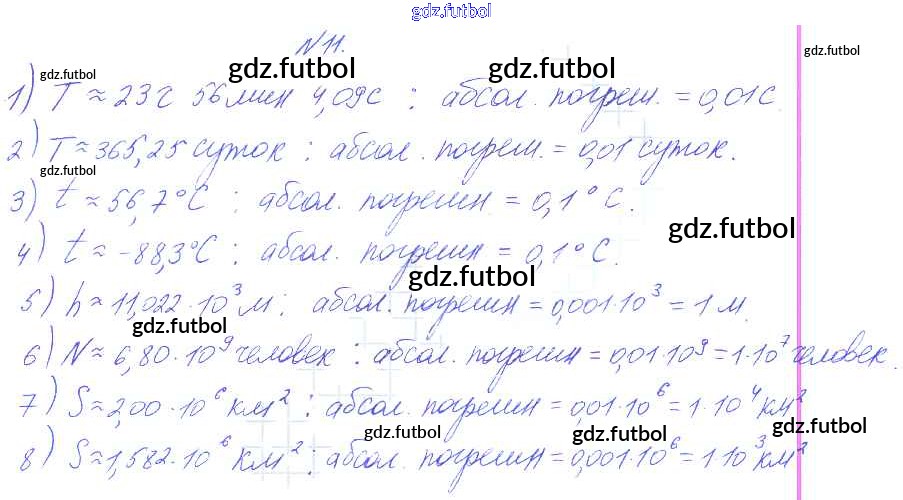 gdz.futbol
N 11.
gdz.futbol gdz.futbol gdz.futbol gdz.futbol
1) T ≈ 23 г 56 мин 4,09 с ; абсол. погреш. = 0,01 с.
2) T ≈ 365,25 суток ; абсол. погреш. = 0,01 суток.
gdz.futbol
3) t ≈ 56,7° C ; абсол. погрешн = 0,1° C.
gdz.futbol
4) t ≈ -88,3° C ; абсол. погрешн = 0,1° C.
gdz.futbol
5) h ≈ 11,022 · 10³ м ; абсол. погрешн = 0,001 · 10³ = 1 м.
gdz.futbol
6) N ≈ 6,80 · 10⁹ человек ; абсол. погрешн = 0,01 · 10⁹ = 1 · 10⁷ человек.
7) S ≈ 2,00 · 10⁶ км² ; абсол. погрешн = 0,01 · 10⁶ = 1 · 10⁴ км²
gdz.futbol gdz.futbol gdz.futbol
8) S ≈ 1,582 · 10⁶ км² ; абсол. погрешн = 0,001 · 10⁶ = 1 · 10³ км²